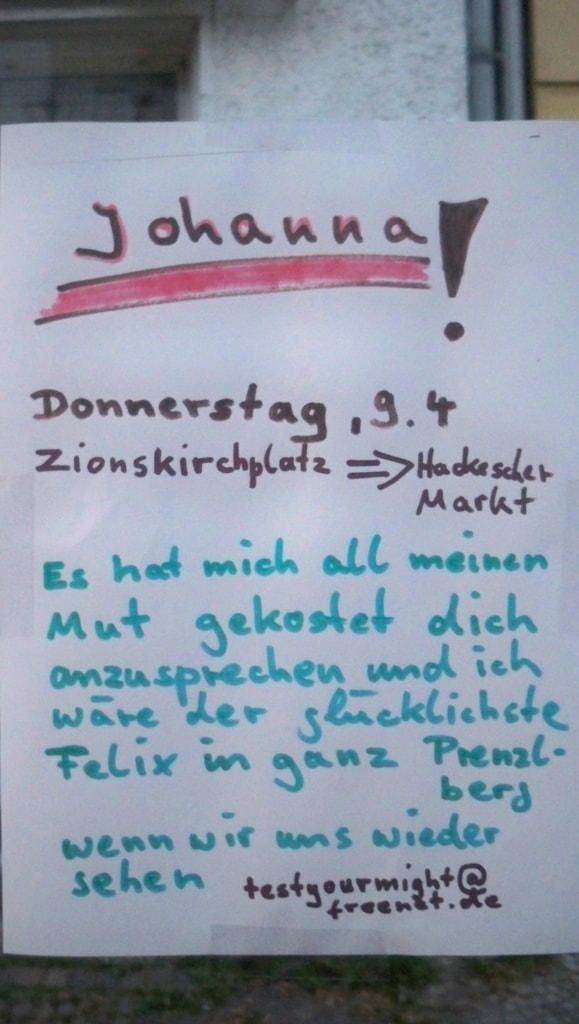 Johanna!
Donnerstag, 9.4
Zionskirchplatz => Hackescher
Markt
Es hat mich all meinen
Mut gekostet dich
anzusprechen und ich
wäre der glücklichste
Felix in ganz Prenzl-
berg
wenn wir uns wieder
sehen testyourmight@
freenet.de